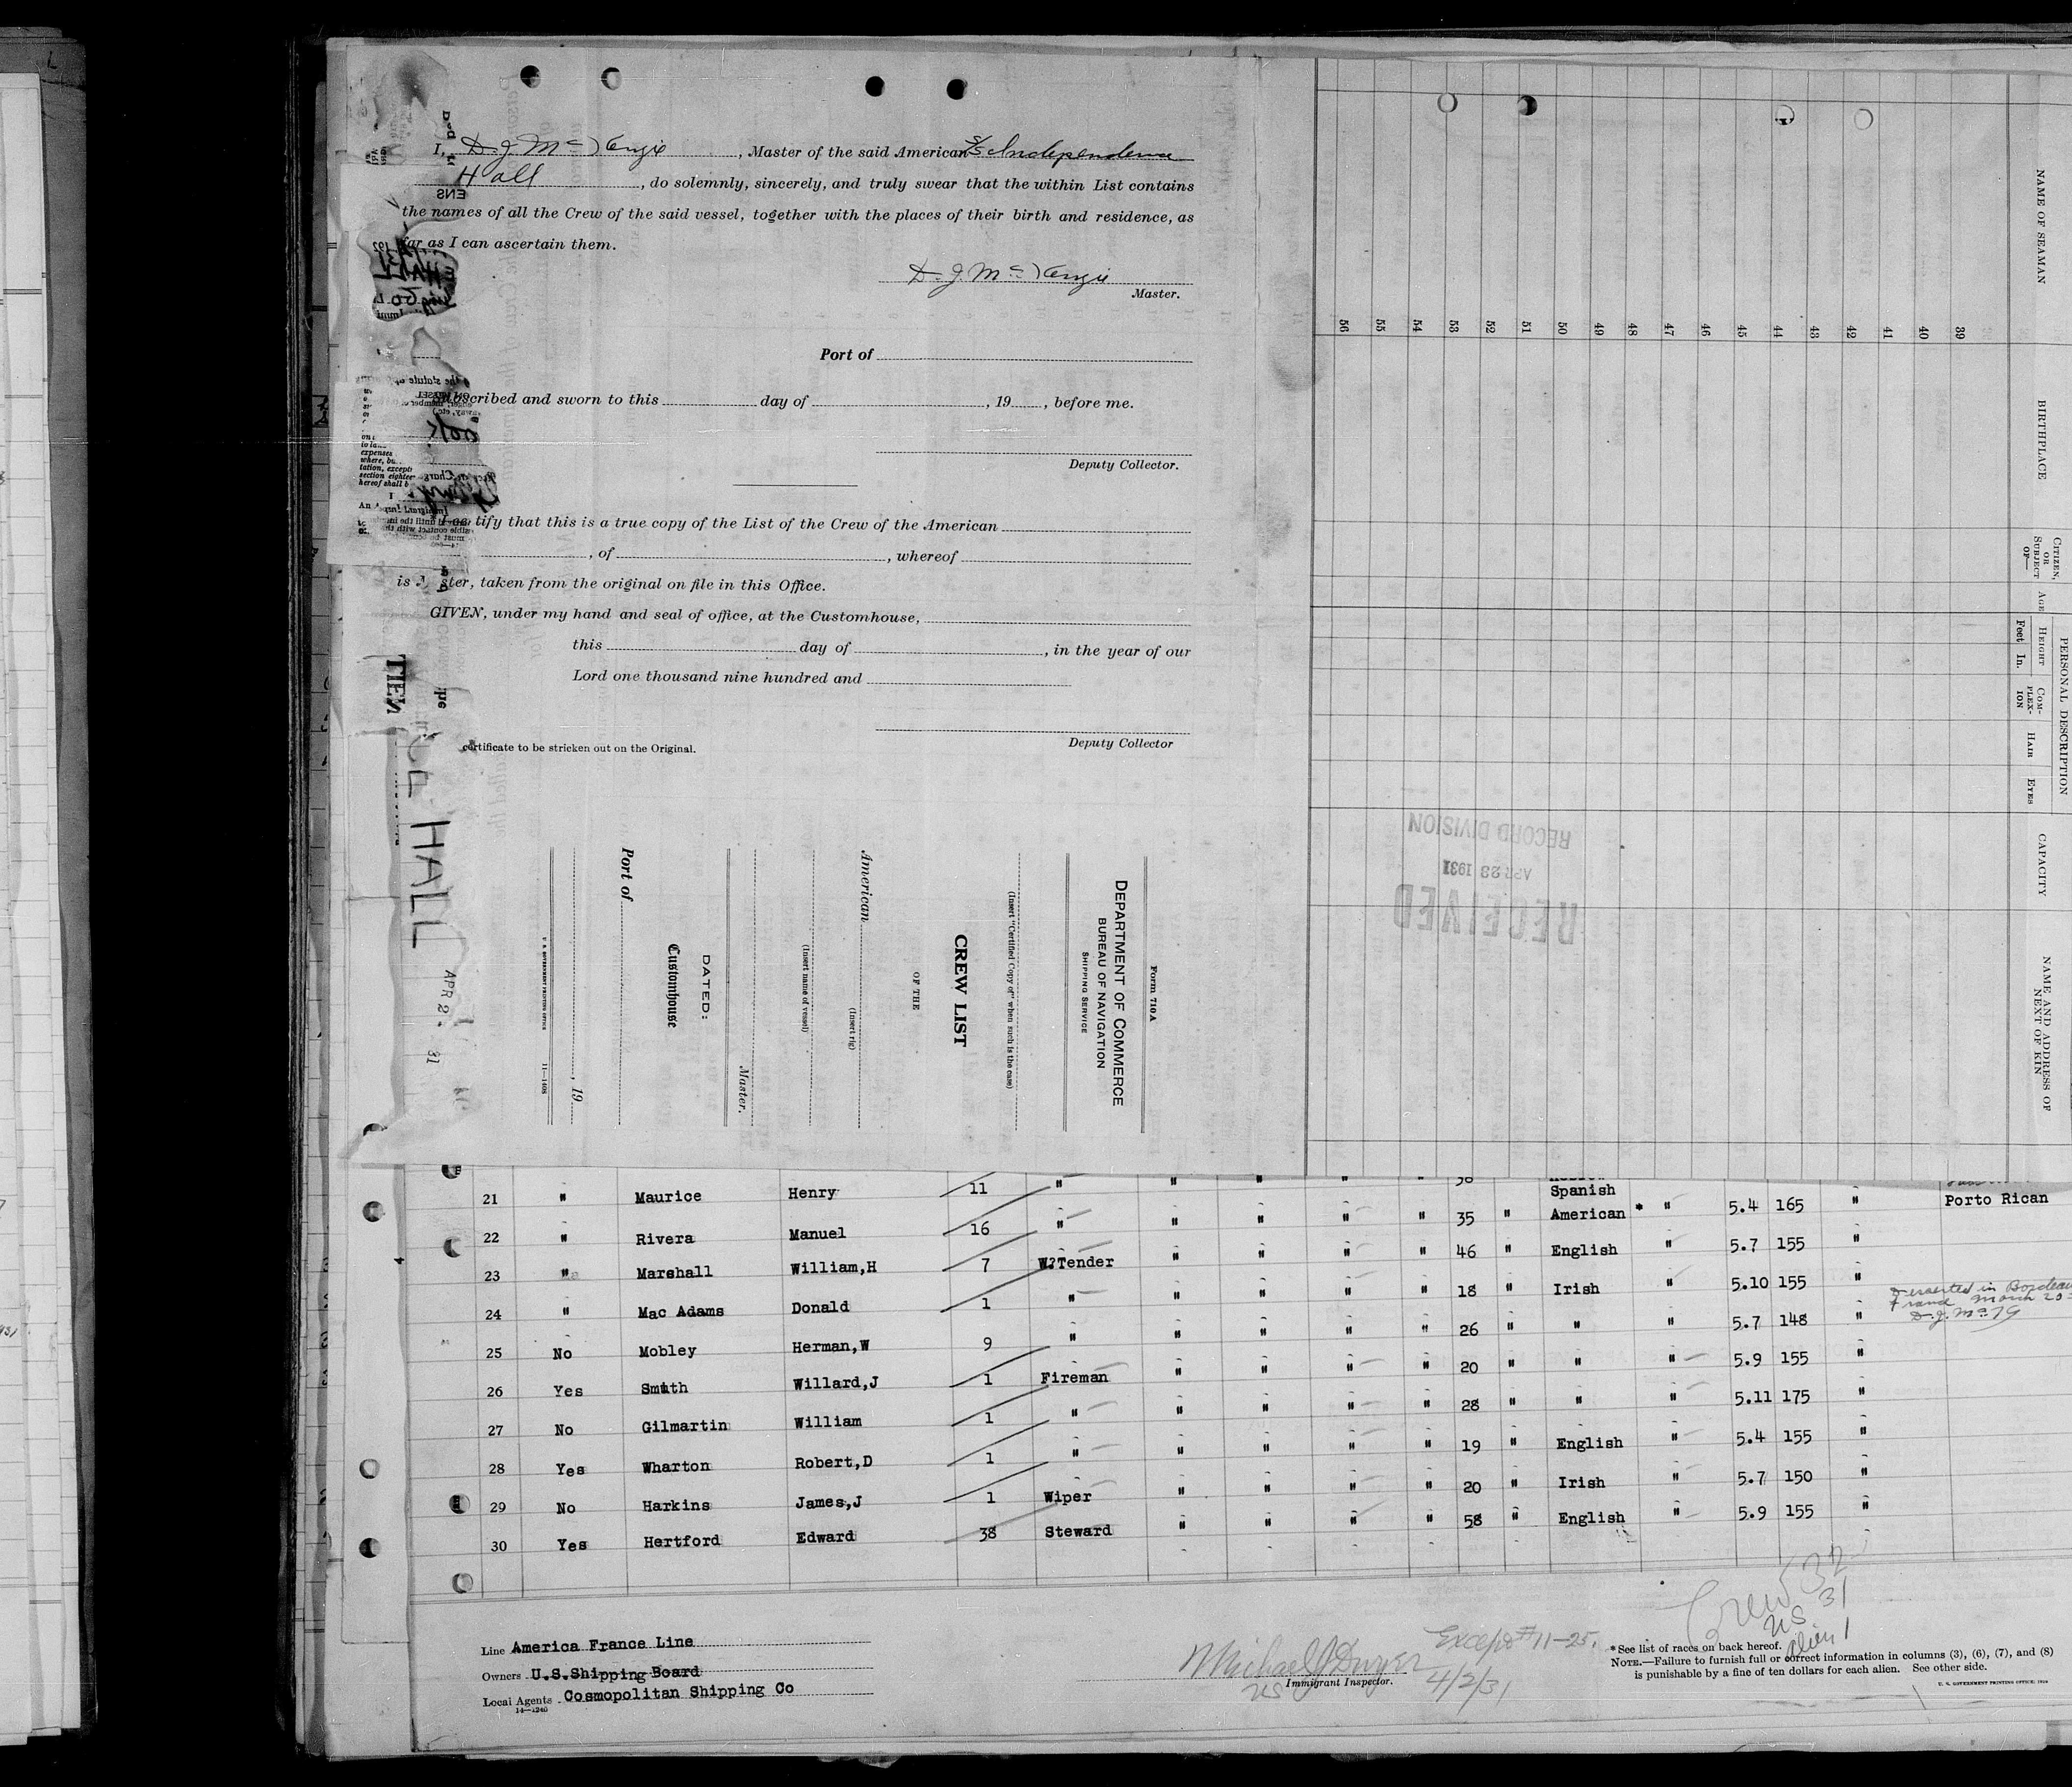 I, D. J. McKenzie, Master of the said American S/S Independence
Hall, do solemnly, sincerely, and truly swear that the within List contains
the names of all the Crew of the said vessel, together with the places of their birth and residence, as
far as I can ascertain them.
D. J. McKenzie
Master.
Port of
Subscribed and sworn to this day of , 19 , before me.
Deputy Collector.
I certify that this is a true copy of the List of the Crew of the American
, of , whereof
is Master, taken from the original on file in this Office.
GIVEN, under my hand and seal of office, at the Customhouse,
this day of , in the year of our
Lord one thousand nine hundred and
Deputy Collector
certificate to be stricken out on the Original.
HALL
APR 2 31
Form 710A
DEPARTMENT OF COMMERCE
BUREAU OF NAVIGATION
SHIPPING SERVICE
(Insert "Certified Copy of" when such is the case)
CREW LIST
OF THE
American
(Insert rig)
(Insert name of vessel)
Master.
DATED:
Customhouse
Port of
, 19
U. S. GOVERNMENT PRINTING OFFICE 11—1408
NAME OF SEAMAN
BIRTHPLACE
CITIZEN, OR SUBJECT OF—
AGE
PERSONAL DESCRIPTION
HEIGHT
Feet In.
COMPLEXION
HAIR
EYES
CAPACITY
NAME AND ADDRESS OF NEXT OF KIN
56 55 54 53 52 51 50 49 48 47 46 45 44 43 42 41 40 39
RECEIVED
APR 23 1931
RECORD DIVISION
21 " Maurice Henry 11 " " " " " 38 Spanish Porto Rican
22 " Rivera Manuel 16 " " " " " 35 " American * " 5.4 165 "
23 " Marshall William,H 7 W.Tender " " " " 46 " English " 5.7 155 "
24 " Mac Adams Donald 1 " " " " " 18 " Irish " 5.10 155 "
Deserted in Bordeaux
France March 20
25 No Mobley Herman,W 9 " " " " " 26 " " " 5.7 148 "
26 Yes Smith Willard,J 1 Fireman " " " " 20 " " " 5.9 155 "
27 No Gilmartin William 1 " " " " " 28 " " " 5.11 175 "
28 Yes Wharton Robert,D 1 " " " " " 19 " English " 5.4 155 "
29 No Harkins James,J 1 Wiper " " " " 20 " Irish " 5.7 150 "
30 Yes Hertford Edward 38 Steward " " " " 58 " English " 5.9 155 "
Crew 32
US 31
Alien 1
Line America France Line
Owners U.S.Shipping Board
Local Agents Cosmopolitan Shipping Co
14—1240
Michael J Dwyer
Except #11-25.
US Immigrant Inspector. 4/2/31
*See list of races on back hereof.
NOTE.—Failure to furnish full or correct information in columns (3), (6), (7), and (8)
is punishable by a fine of ten dollars for each alien. See other side.